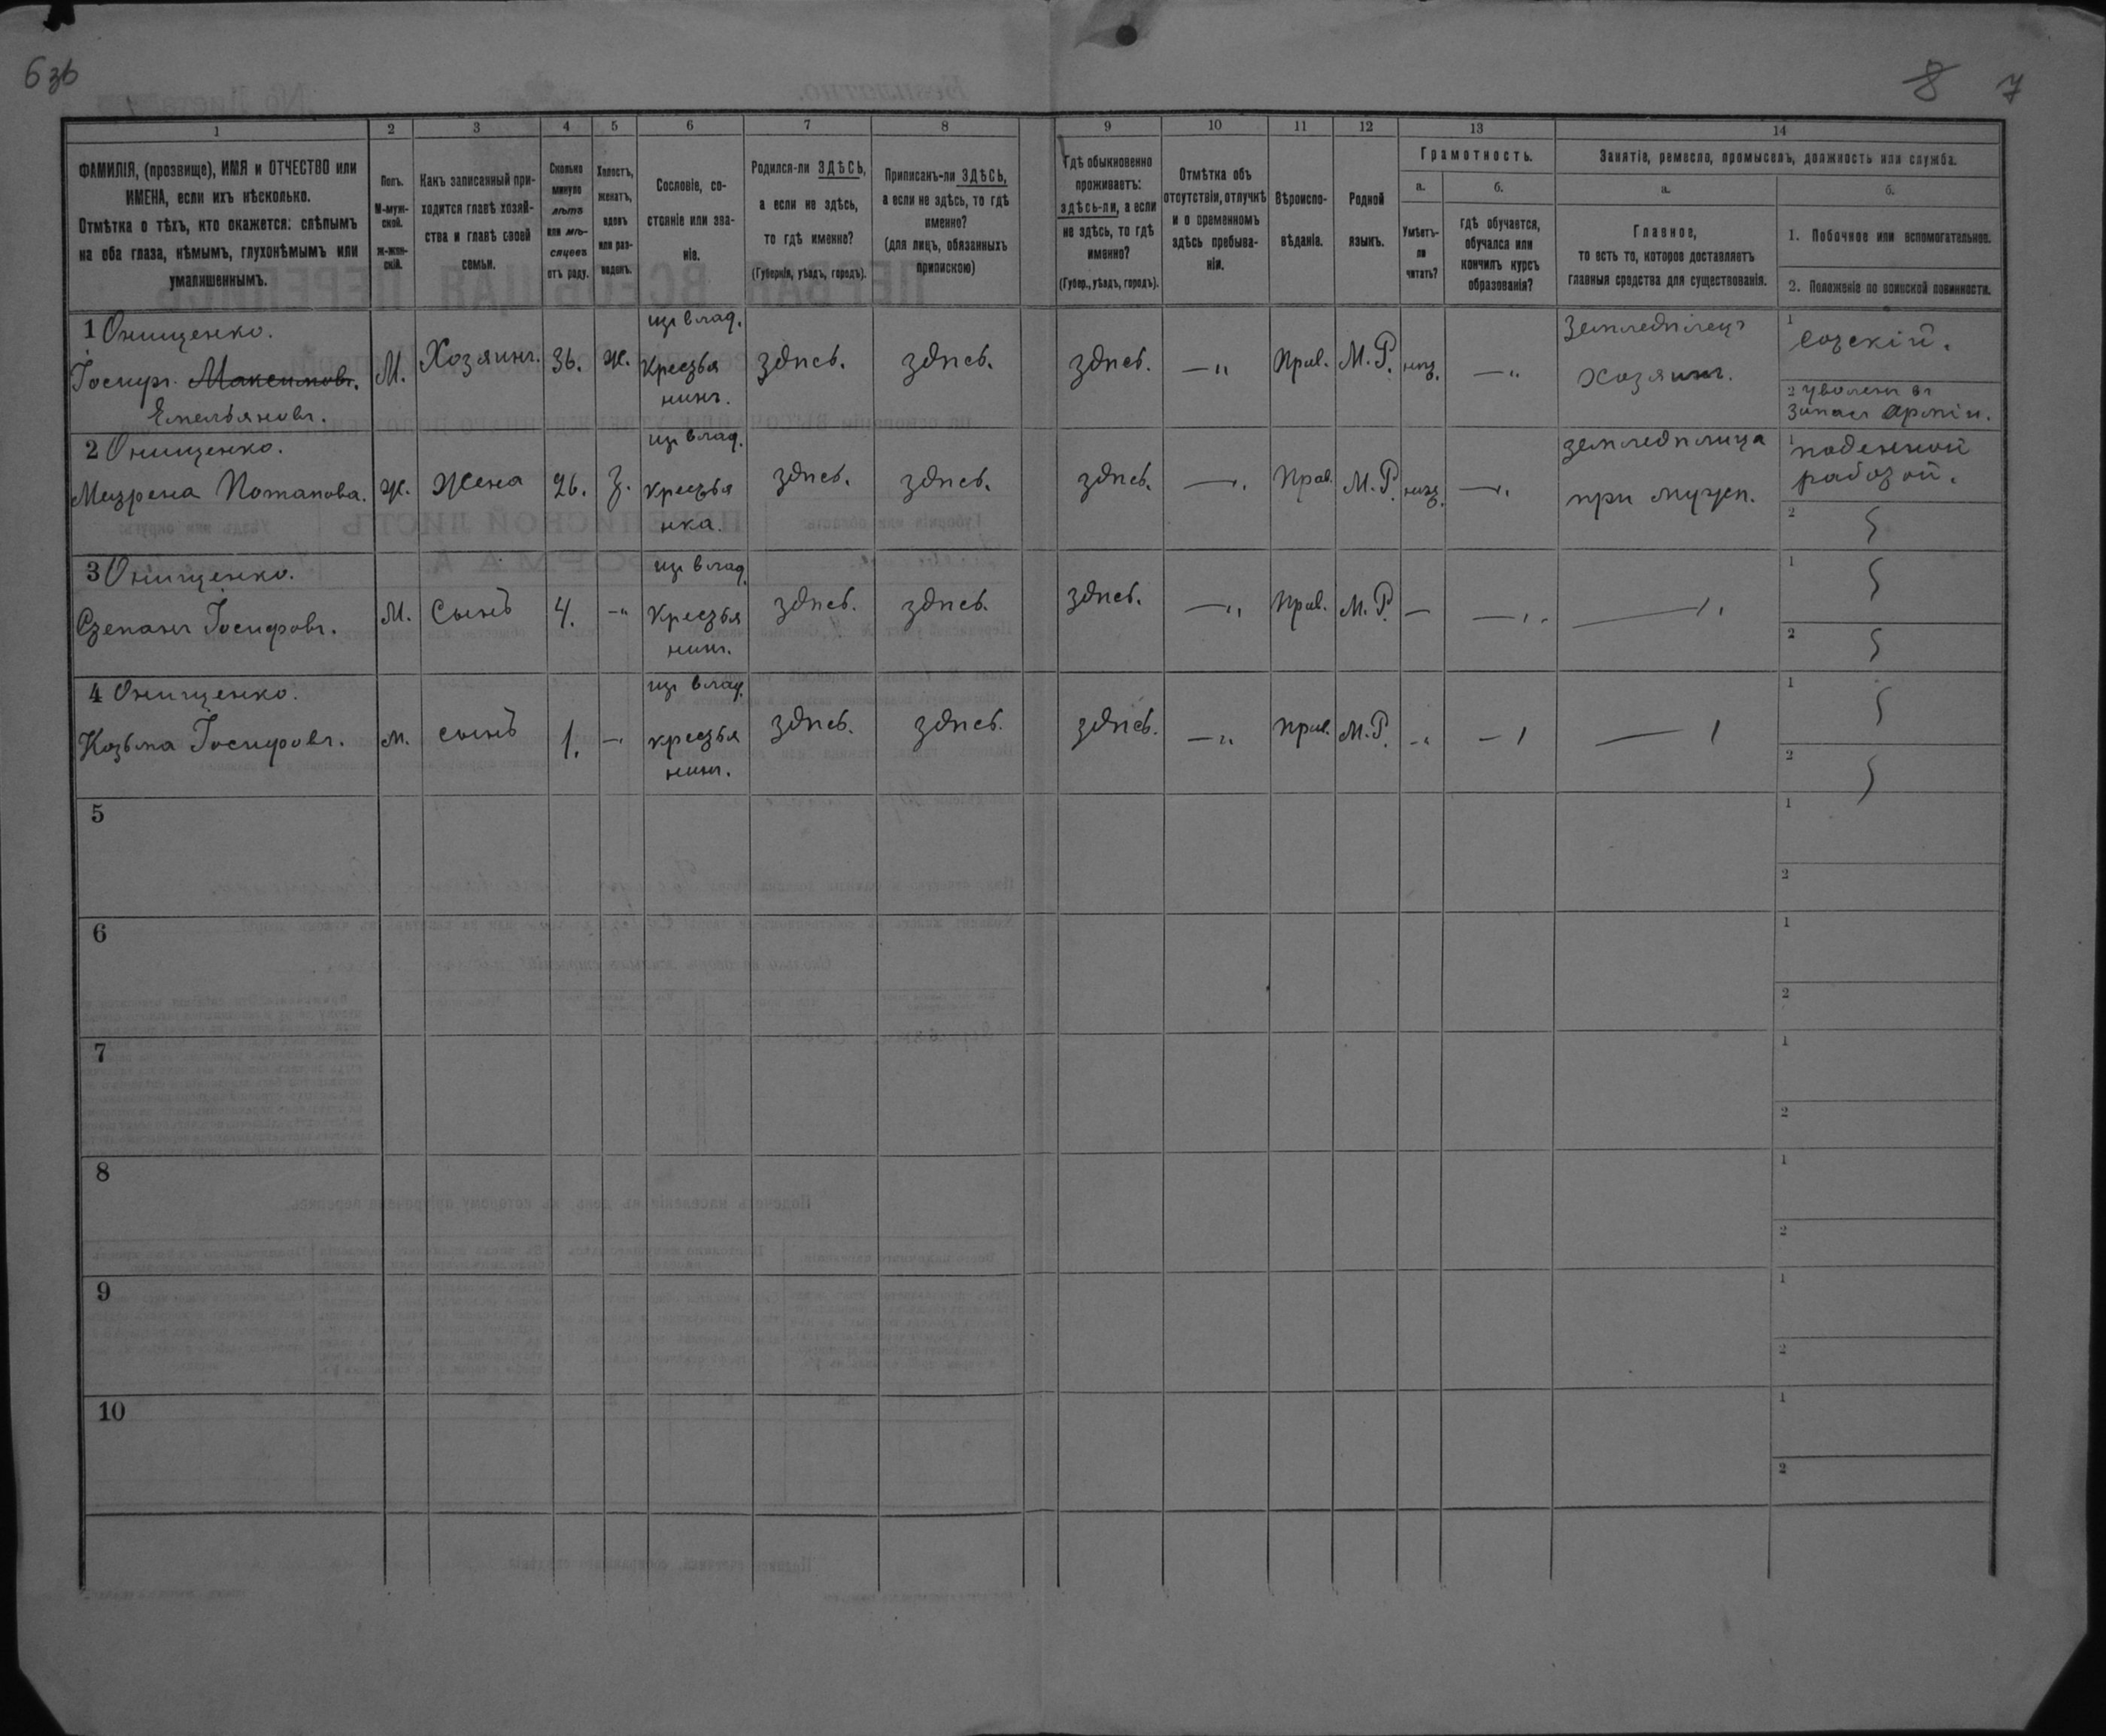 6 зв
8 7
1 2 3 4 5 6 7 8 9 10 11 12 13 14
ФАМИЛІЯ, (прозвище), ИМЯ и ОТЧЕСТВО или
ИМЕНА, если ихъ нѣсколько.
Отмѣтка о тѣхъ, кто окажется: слѣпымъ
на оба глаза, нѣмымъ, глухонѣмымъ или
умалишеннымъ.
Полъ.
М-муж-
ской.
ж-жен-
скій.
Какъ записанный при-
ходится главѣ хозяй-
ства и главѣ своей
семьи.
Сколько
минуло
лѣтъ
или мѣ-
сяцевъ
отъ роду.
Холостъ,
женатъ,
вдовъ
или раз-
веденъ.
Сословіе, со-
стояніе или зва-
ніе.
Родился-ли ЗДѢСЬ,
а если не здѣсь,
то гдѣ именно?
(Губернія, уѣздъ, городъ).
Приписанъ-ли ЗДѢСЬ,
а если не здѣсь, то гдѣ
именно?
(для лицъ, обязанныхъ
припискою)
Гдѣ обыкновенно
проживаетъ:
здѣсь-ли, а если
не здѣсь, то гдѣ
именно?
(Губер., уѣздъ, городъ).
Отмѣтка объ
отсутствіи, отлучкѣ
и о временномъ
здѣсь пребыва-
ніи.
Вѣроиспо-
вѣданіе.
Родной
языкъ.
Грамотность.
а.
Умѣетъ-
ли
читать?
б.
гдѣ обучается,
обучался или
кончилъ курсъ
образованія?
Занятіе, ремесло, промыселъ, должность или служба.
а.
Главное,
то есть то, которое доставляетъ
главныя средства для существованія.
б.
1. Побочное или вспомогательное.
2. Положеніе по воинской повинности.
1 Онищенко.
Іосифъ Максимовъ.
Емельяновъ.
М.
Хозяинъ.
36.
ж.
из влад.
Крестья
нинъ.
здѣсь.
здѣсь.
здѣсь.
— "
Прав.
М. Р.
нѣт.
— "
Земледѣлецъ
хозяинъ.
1
Сотскій.
2 уволенъ въ
запасъ арміи.
2 Онищенко.
Матрена Потапова.
ж.
жена
26.
з.
из влад.
крестья
нка.
здѣсь.
здѣсь.
здѣсь.
— "
Прав.
М. Р.
нѣт.
— "
земледѣлица
при мужѣ.
1 поденной
работой.
2
3 Онищенко.
Степанъ Іосифовъ.
М.
Сынъ
4.
— "
из влад.
Крестья
нинъ.
здѣсь.
здѣсь.
здѣсь.
— "
Прав.
М. Р.
—
— "
— "
1
2
4 Онищенко.
Козьма Іосифовъ.
м.
сынъ
1.
— "
из влад.
крестья
нинъ.
здѣсь.
здѣсь.
здѣсь.
— "
Прав.
М. Р.
— "
— "
— "
1
2
5
1
2
6
1
2
7
1
2
8
1
2
9
1
2
10
1
2